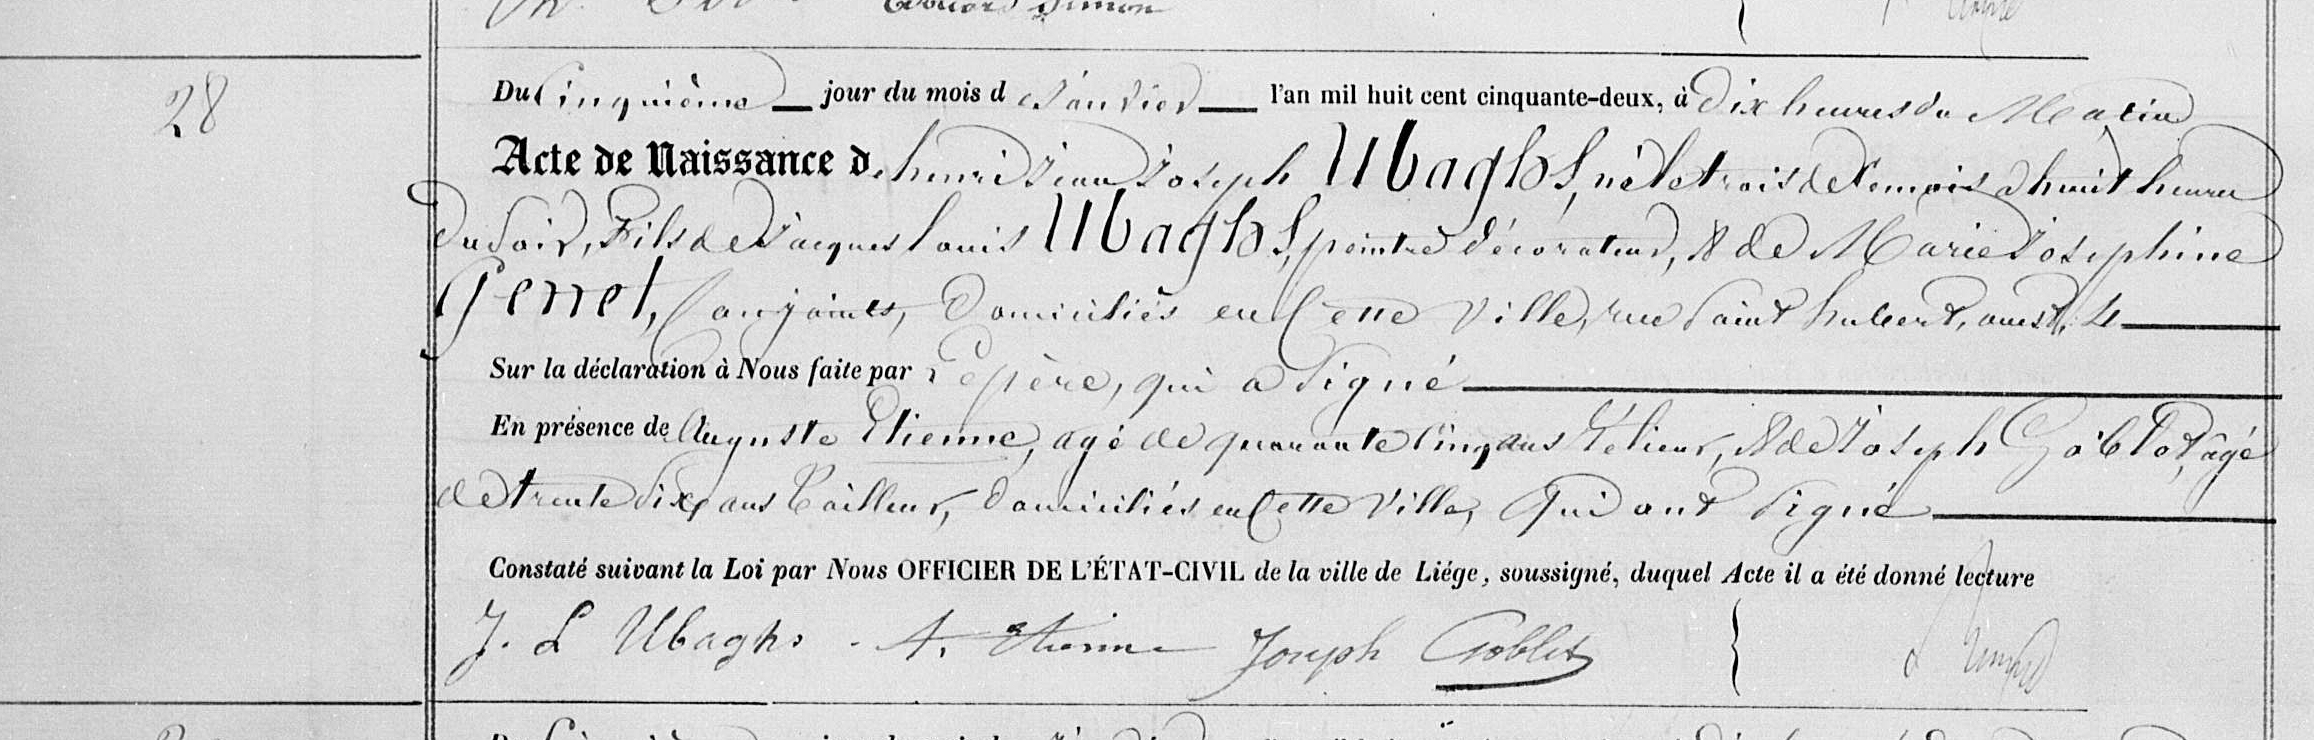 Edouard Simon
28
Du Cinquième jour du mois d Janvier l'an mil huit cent cinquante-deux, à Dix heures du Matin
Acte de Naissance d. henri Jean Joseph Ubaghs, né le trois de ce mois à huit heures
du soir, Fils de Jacques Louis Ubaghs, peintre décorateur, & de Marie Josephine
Genet, Conjoints, Domiciliés en Cette Ville, rue Saint hubert, ouest, 4
Sur la déclaration à Nous faite par Le père, qui a Signé
En présence de Auguste Etienne, agé de quarante Cinq ans, & de Joseph Goblet, âgé
de trente Six ans Tailleur, domiciliés en Cette Ville, Qui ont Signé
Constaté suivant la Loi par Nous OFFICIER DE L'ÉTAT-CIVIL de la ville de Liége, soussigné, duquel Acte il a été donné lecture
J. L Ubaghs. A. Etienne Joseph Goblet